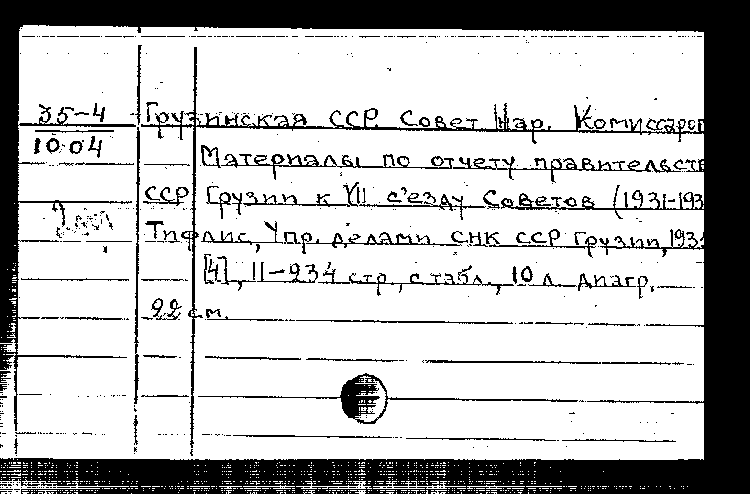 35-4
1004
Грузинская ССР. Совет Нар. Комиссаров
Материалы по отчету правительств
ССР Грузии к VII с'езду Советов (1931-193
Тифлис, Упр. делами СНК ССР Грузии, 193
[4], II-234 стр., с табл., 10 л. диагр.
22 см.